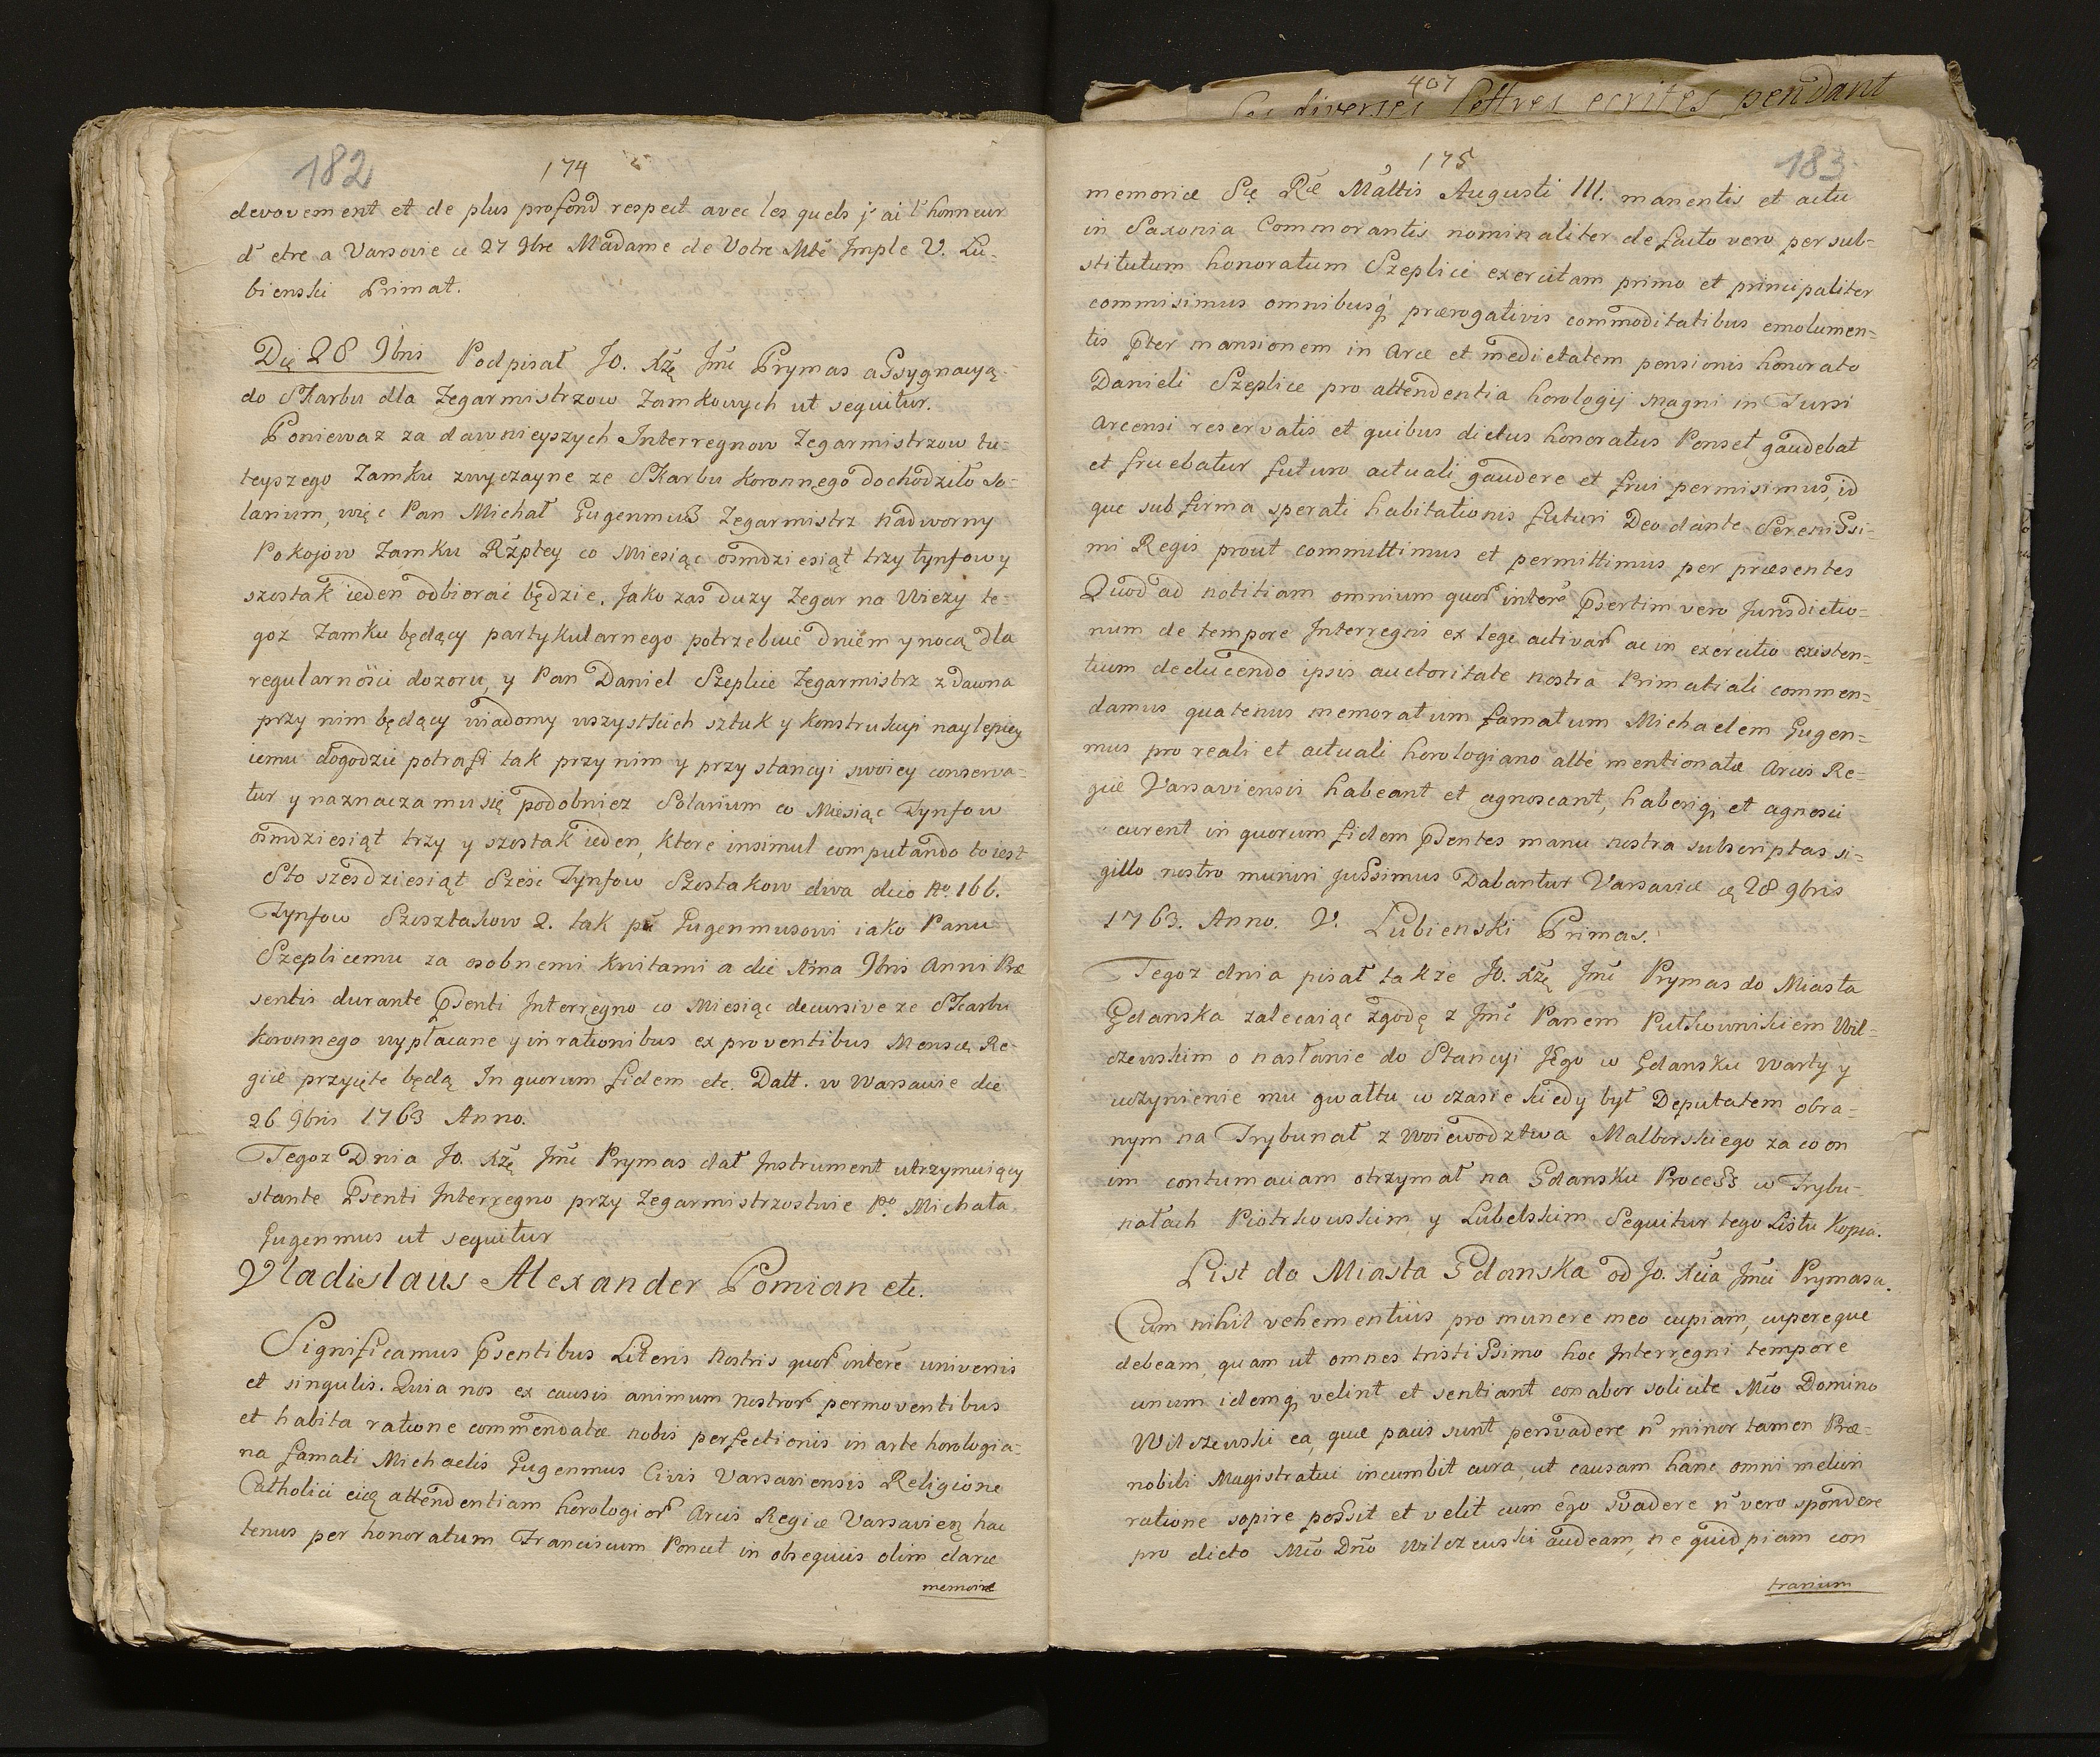 182
174
devovement et de plus profond respect avec les quels j' ai l' honneur
d' etre a Varsovie ce 27 9bre Madame de Votre Mtė Imple V. Lu-
bienski Primat.
Die 28 9bris Podpisał Jo. Xżę Jmć Prymas assygnacyą
do Skarbu dla Zegarmistrzow Zamkowych ut sequitur.
Poniewaz za dawnieyszych Interregnow Zegarmistrzow tu-
teyszego Zamku zwyczayne ze Skarbu Koronnego dochodziło So-
larium, więc Pan Michał Gugenmus Zegarmistrz nadworny
Pokojow Zamku Rzptey co Miesiąc osmdziesiąt trzy tynfow y
szostak ieden odbierac będzie. Jako zas duzy Zegar na Wiezy te-
goz Zamku będący partykularnego potrzebuie dniem y nocą dla
regularności dozoru, y Pan Daniel Szeplice Zegarmistrz zdawna
przy nim będący wiadomy wszystkich sztuk y konstrukcyi naylepiey
iemu dogodzic potrafi tak przy nim y przy stancyi swoiey conserva-
tur y naznacza mu się podobniez Solarium co Miesiąc Tynfow
osmdziesiąt trzy y szostak ieden, ktore insimul computando to iest
Sto szesdziesiąt Szesc Tynfow Szostakow dwa dico No. 166.
Tynfow Szosztakow 2. tak pu Gugenmusowi iako Panu
Szeplicemu za osobnemi kwitami a die 1ma 9bris Anni Præ
sentis durante Psenti Interregno co Miesiąc decursive ze Skarbu
Koronnego wypłacane y in rationibus ex proventibus Mensæ Re-
giæ przyięte będą In quorum fidem etc. Datt. w Warsawie die
26 9bris 1763 Anno.
Tegoz Dnia Jo. Xżę Jmć Prymas dał Instrument utrzymuiący
stante Psenti Interregno przy Zegarmistrzostwie Po. Michała
Gugenmus ut sequitur
Vladislaus Alexander Pomian etc.
Significamus Psentibus Literis Nostris quor interē univenis
et singulis. Quia nos ex causis animum nostror permoventibus
et habita ratione commendatæ nobis perfectionis in arte horologia-
na famati Michaelis Gugenmus Civis Varsaviensis Religione
Catholici eią attendentiam horologior Arcis Regiæ Varsavien hac
tenus per honoratum Franciscum Poncet in obsequiis olim claræ
memoiræ
407
les diverses lettres ecrites pendant
175
183
memoriæ Sę Ræ Māttis Augusti III. manentis et actu
in Saxonia Commorantis nominaliter de facto vero per sub-
stitutum honoratum Szeplice exercitam primo et principaliter
commisimus omnibusq prærogativis commoditatibus emolumen-
tis Pter mansionem in Arce et medietatem pensionis honorato
Danieli Szeplice pro attendentia horologij magni in Turri
Arcensi reservatis et quibus dictus honoratus Ponset gaudebat
et fruebatur futuro actuali gaudere et frui permisimus, id
que sub firma sperati habitationis futuri Deo dante Serenissi-
mi Regis prout committimus et permittimus per præsentes
Quod ad notitiam omnium quor interē Psertim vero Jurisdictio-
num de tempore Interregni ex lege activar ac in exercitio existen-
tium deducendo ipsis auctoritate nostra Primatiali commen-
damus quatenus memoratum famatum Michaelem Gugen-
mus pro reali et actuali horologiano alte mentionatæ Arcis Re-
giæ Varsaviensis habeant et agnoscant, haberiq et agnosci
curent in quorum fidem Psentes manu nostra subscriptas si-
gillo nostro muniri jussimus Dabantur Varsaviæ d 28 9bris
1763. Anno. V. Lubienski Primas.
Tegoz dnia pisał takze Jo. Xżę Jmć Prymas do Miasta
Gdanska zalecaiąc zgodę z Jmć Panem Pułkownikiem Wil-
czewskim o nasłanie do Stancyi Jego w Gdansku Warty y
uczynienie mu gwałtu w czasie kiedy był Deputatem obra-
nym na Trybunał z Woiewodztwa Malborskiego za co on
im contumaciam otrzymał na Gdansku Process w Trybu-
nałach Piotrkowskim y Lubelskim Sequitur tego Listu Kopia.
List do Miasta Gdanska od Jo. Xcia Jmci Prymasa.
Cum nihil vehementiis pro munere meo cupiam, cupereque
debeam, quam ut omnes tristissimo hoc Interregni tempore
unum idemq velint et sentiant conabor solicite Mco Domino
Wilczewski ea, quæ pacis sunt persvadere n minor tamen Præ-
nobili Magistratui incumbit cura, ut causam hanc omni meliori
ratione sopire possit et velit cum ego svadere n vero spondere
pro dicto Mco Dno Wilczewski audeam, ne quidpiam con
trarium